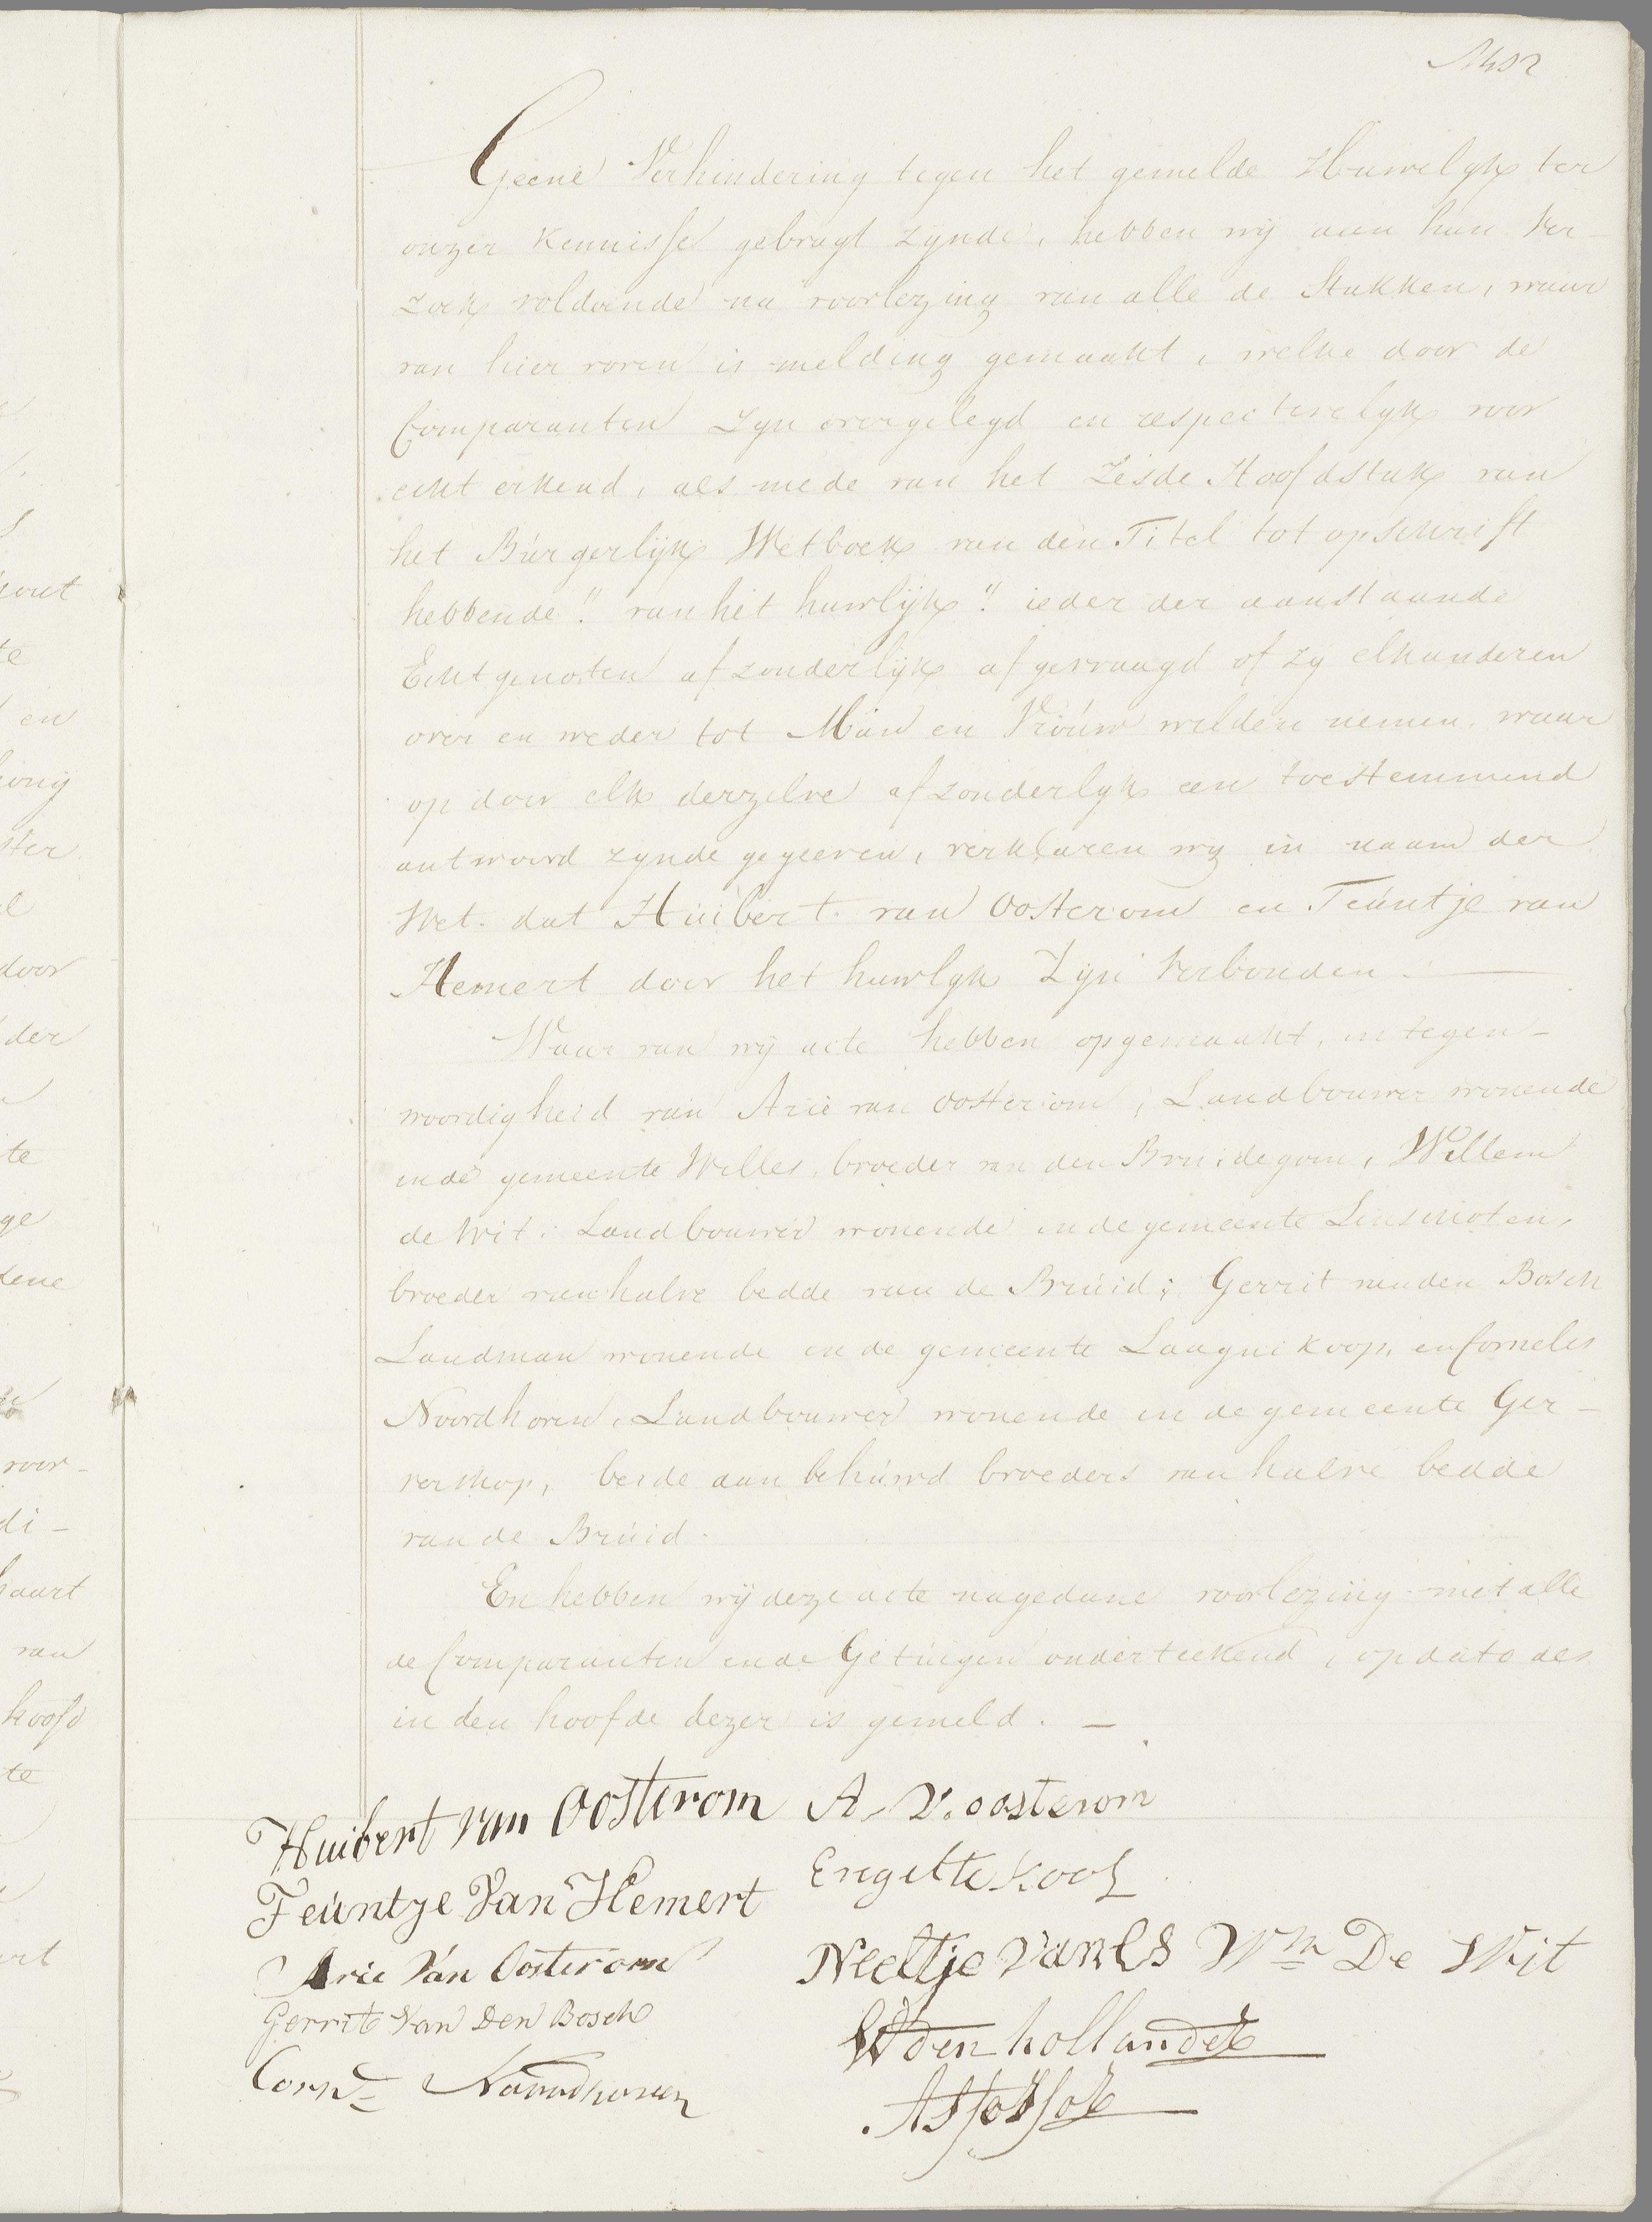 Geene Verhindering tegen het gemelde Huwelyk ter
onzer Kennisse gebragt zijnde, hebben wij aan hun ver-
zoek voldoende na voorlezing van alle de Stukken, waar
van hier voren is melding gemaakt, welke door de
Comparanten zyn overgelegd en respectivelyk voor
echt erkend, als mede van het Zesde Hoofdstuk van
het Burgerlijk Wetboek van den Titel tot opschrift
hebbende "van het huwlijk" ieder der aanstaande
Echtgenoten afzonderlijk afgevraagd of zy elkanderen
over en weder tot Man en Vrouw wilden nemen, waar
op door elk derzelve afzonderlyk een toestemmend
antwoord zynde gegeeven, verklaren wy in naam der
Wet. dat Huibert van Oosterom en Teuntje van
Hemert door het huwlyk Zijn Verbonden.
Waar van wij acte hebben opgemaakt, in tegen-
woordigheid van Arie van Oosterom, Landbouwer wonende
in de gemeente Willes, broeder van den Bruidegom, Willem
de Wit, Landbouwer wonende in de gemeente Linschoten,
broeder van halve bedde van de Bruid; Gerrit van den Bosch
Landman wonende in de gemeente Laagnikoop, en Cornelis
Noordhoven, Landbouwer wonende in de gemeente Ger-
verskop, beide aan behuwd broeders van halve bedde
van de Bruid.
En hebben wij deze acte nagedane voorlezing met alle
de Comparanten en de Getuigen onderteekend, op dato als
in den hoofde dezer is gemeld. —
Huibert van Oosterom A. V. oosterom
Teuntje Van Hemert Engeltie Kool
Arie Van Oosterom Neeltje Van Es Wm De Wit
Gerrit Van Den Bosch W den hollander
Corns Noordhoven